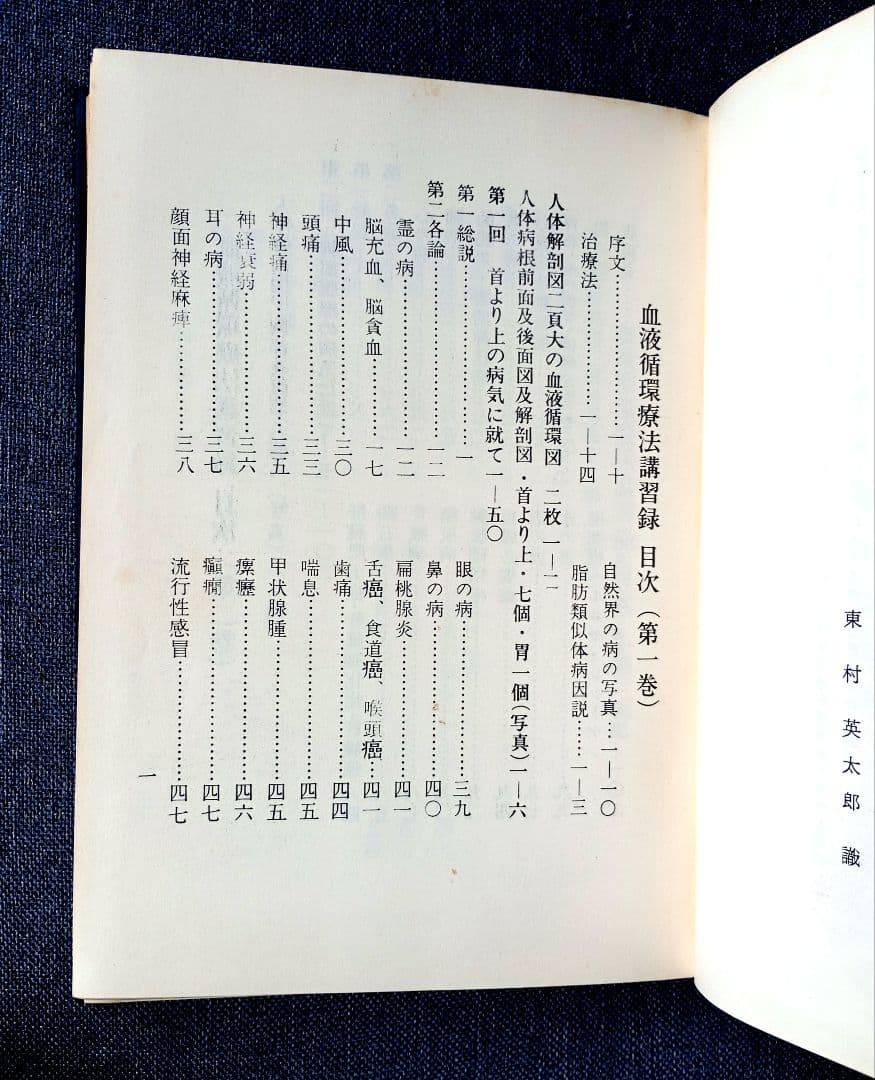 東村英太郎 識
血液循環療法講習録 目次（第一巻）
序文……………一―十
自然界の病の写真…一―一〇
治療法……………一―十四
脂肪類似体病因説……一―三
人体解剖図二頁大の血液循環図 二枚 一―二
人体病根前面及後面図及解剖図・首より上・七個・胃一個（写真）一―六
第一回 首より上の病気に就て一―五〇
第一総説……………一
第二各論……………一二
霊の病……………一二
脳充血、脳貧血…………一七
中風……………三〇
頭痛……………三三
神経痛……………三五
神経衰弱……………三六
耳の病……………三七
顔面神経麻痺……………三八
眼の病……………三九
鼻の病……………四〇
扁桃腺炎……………四一
舌癌、食道癌、喉頭癌…四一
歯痛……………四四
喘息……………四五
甲状腺腫……………四五
瘰癧……………四六
癲癇……………四七
流行性感冒……………四七
一